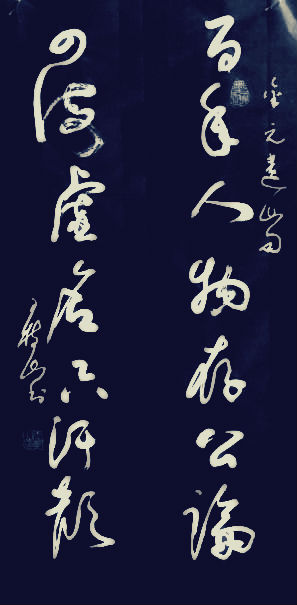 金元遺山句
百年人物存公論
四海虛名只汗顏